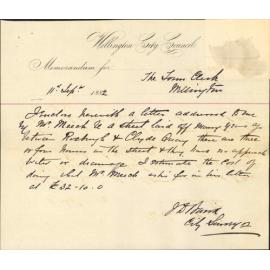 Wellington City Council
Memorandum for
The Town Clerk
Wellington
11th Sept 1882
I enclose herewith a letter addressed to me
by Mr Meech re a street laid off many years ago
between Roxburgh & Clyde Quay there are three
or four houses in the street & they have no approach
water or drainage I estimate the cost of
doing what Mr Meech asks for in his letter
at £32-10.0
City Surveyor